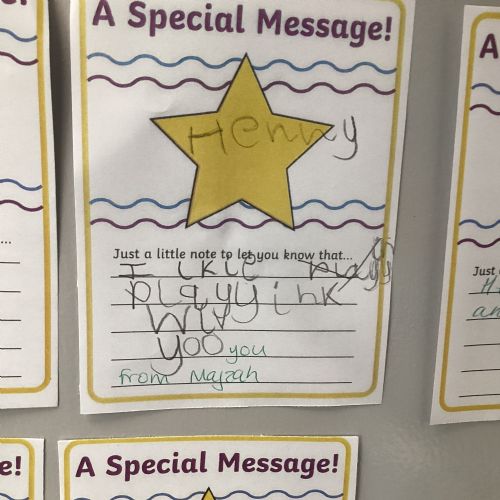 A Special Message!
Henny
Just a little note to let you know that...
I ikle play
playyink
Wiv
yoo you
from Mayzah
e!
A Special Message!
A
Just
an
...